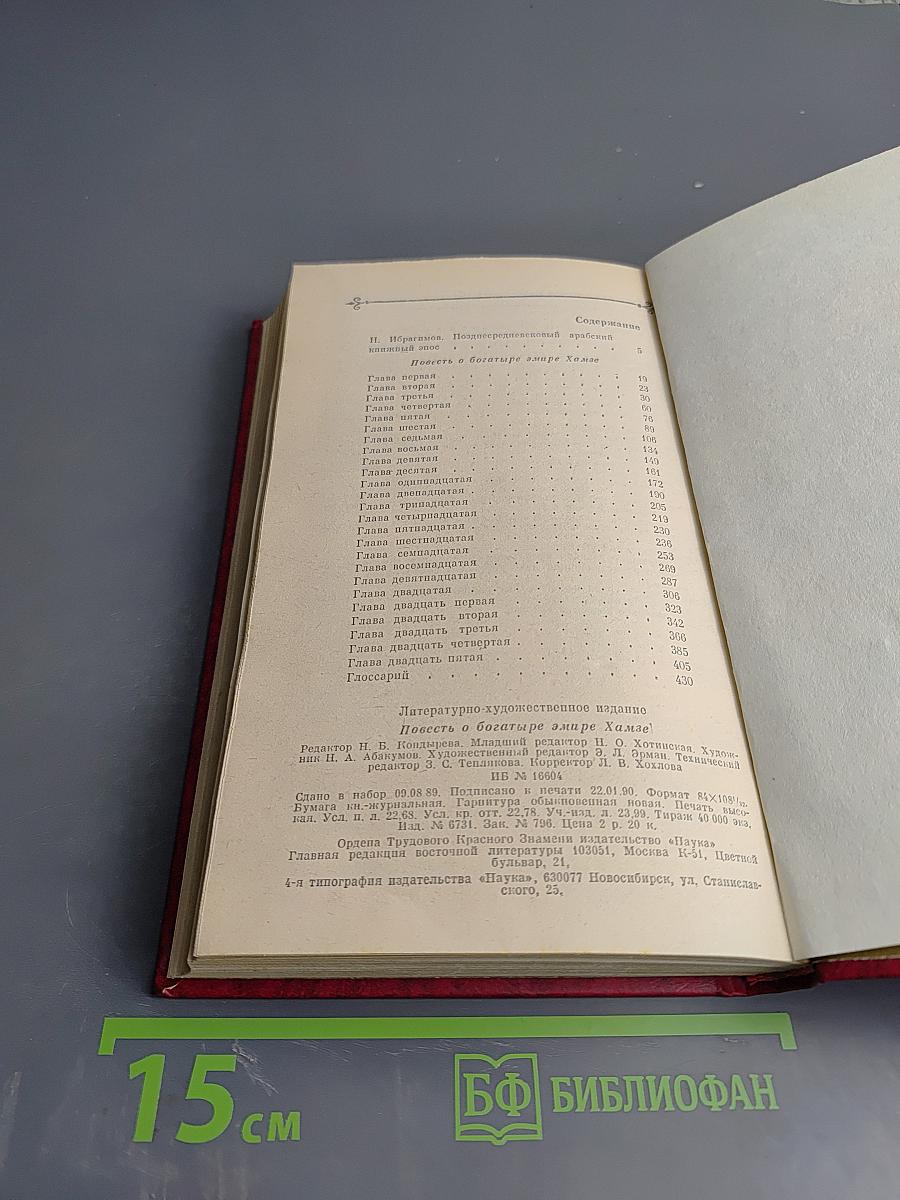 Содержание
Н. Ибрагимов. Позднесредневековый арабский
книжный эпос . . . . . . . . . . 5
Повесть о богатыре эмире Хамзе
Глава первая . . . . . . . . . . 19
Глава вторая . . . . . . . . . . 23
Глава третья . . . . . . . . . . 30
Глава четвертая . . . . . . . . . . 60
Глава пятая . . . . . . . . . . 76
Глава шестая . . . . . . . . . . 89
Глава седьмая . . . . . . . . . . 106
Глава восьмая . . . . . . . . . . 134
Глава девятая . . . . . . . . . . 149
Глава десятая . . . . . . . . . . 161
Глава одиннадцатая . . . . . . . . 172
Глава двенадцатая . . . . . . . . 190
Глава тринадцатая . . . . . . . . 205
Глава четырнадцатая . . . . . . . . 219
Глава пятнадцатая . . . . . . . . 230
Глава шестнадцатая . . . . . . . . 236
Глава семнадцатая . . . . . . . . 253
Глава восемнадцатая . . . . . . . . 269
Глава девятнадцатая . . . . . . . . 287
Глава двадцатая . . . . . . . . 306
Глава двадцать первая . . . . . . . 323
Глава двадцать вторая . . . . . . . 342
Глава двадцать третья . . . . . . . 366
Глава двадцать четвертая . . . . . . 385
Глава двадцать пятая . . . . . . . 405
Глоссарий . . . . . . . . . . 430
Литературно-художественное издание
Повесть о богатыре эмире Хамзе
Редактор Н. Б. Кондырева. Младший редактор Н. О. Хотинская. Худож-
ник Н. А. Абакумов. Художественный редактор Э. Л. Эрман. Технический
редактор З. С. Теплякова. Корректор Л. В. Хохлова
ИБ № 16604
Сдано в набор 09.08.89. Подписано к печати 22.01.90. Формат 84×108¹/₃₂.
Бумага кн.-журнальная. Гарнитура обыкновенная новая. Печать высо-
кая. Усл. п. л. 22,68. Усл. кр. отт. 22,78. Уч.-изд. л. 23,99. Тираж 40 000 экз.
Изд. № 6731. Зак. № 796. Цена 2 р. 20 к.
Ордена Трудового Красного Знамени издательство «Наука»
Главная редакция восточной литературы 103051, Москва К-51, Цветной
бульвар, 21.
4-я типография издательства «Наука», 630077 Новосибирск, ул. Станислав-
ского, 25.
15 см
БФ БИБЛИОФАН